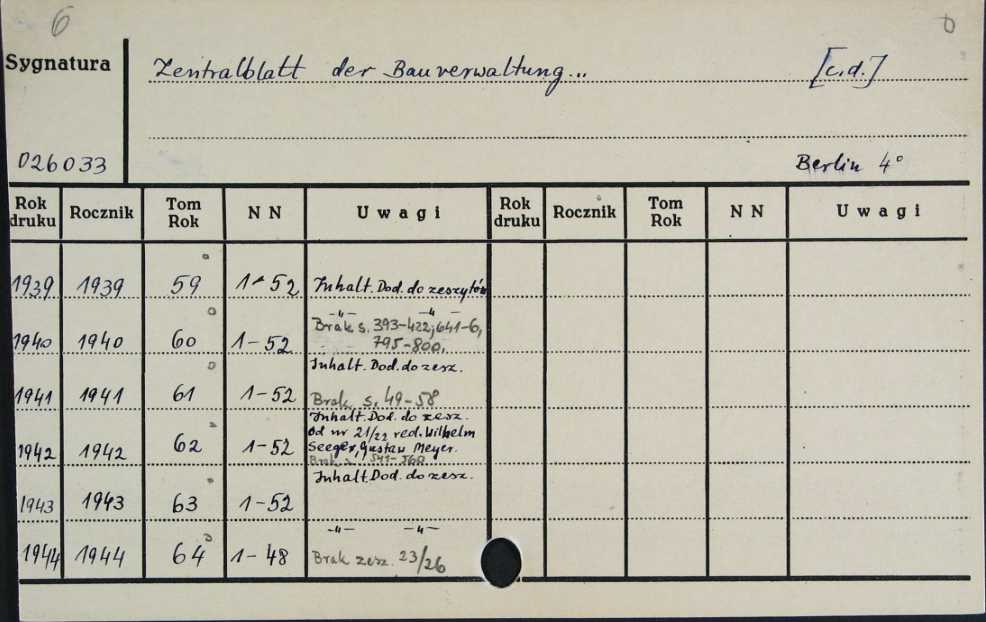 6
Sygnatura Zentralblatt der Bauverwaltung... [c.d.]
026033 Berlin 4°
Rok druku Rocznik Tom Rok NN Uwagi Rok druku Rocznik Tom Rok NN Uwagi
1939 1939 59 1-52 Inhalt. Dod. do zeszytów
1940 1940 60 1-52 -"- -"-
Brak s. 393-422; 641-6,
795-800.
1941 1941 61 1-52 Inhalt. Dod. do zesz.
Brak s. 49-58
1942 1942 62 1-52 Inhalt. Dod. do zesz.
Od nr 21/22 red. Wilhelm
Seeger, Gustav Meyer.
Brak s. 541-560
1943 1943 63 1-52 Inhalt. Dod. do zesz.
1944 1944 64 1-48 -"- -"-
Brak zesz. 23/26